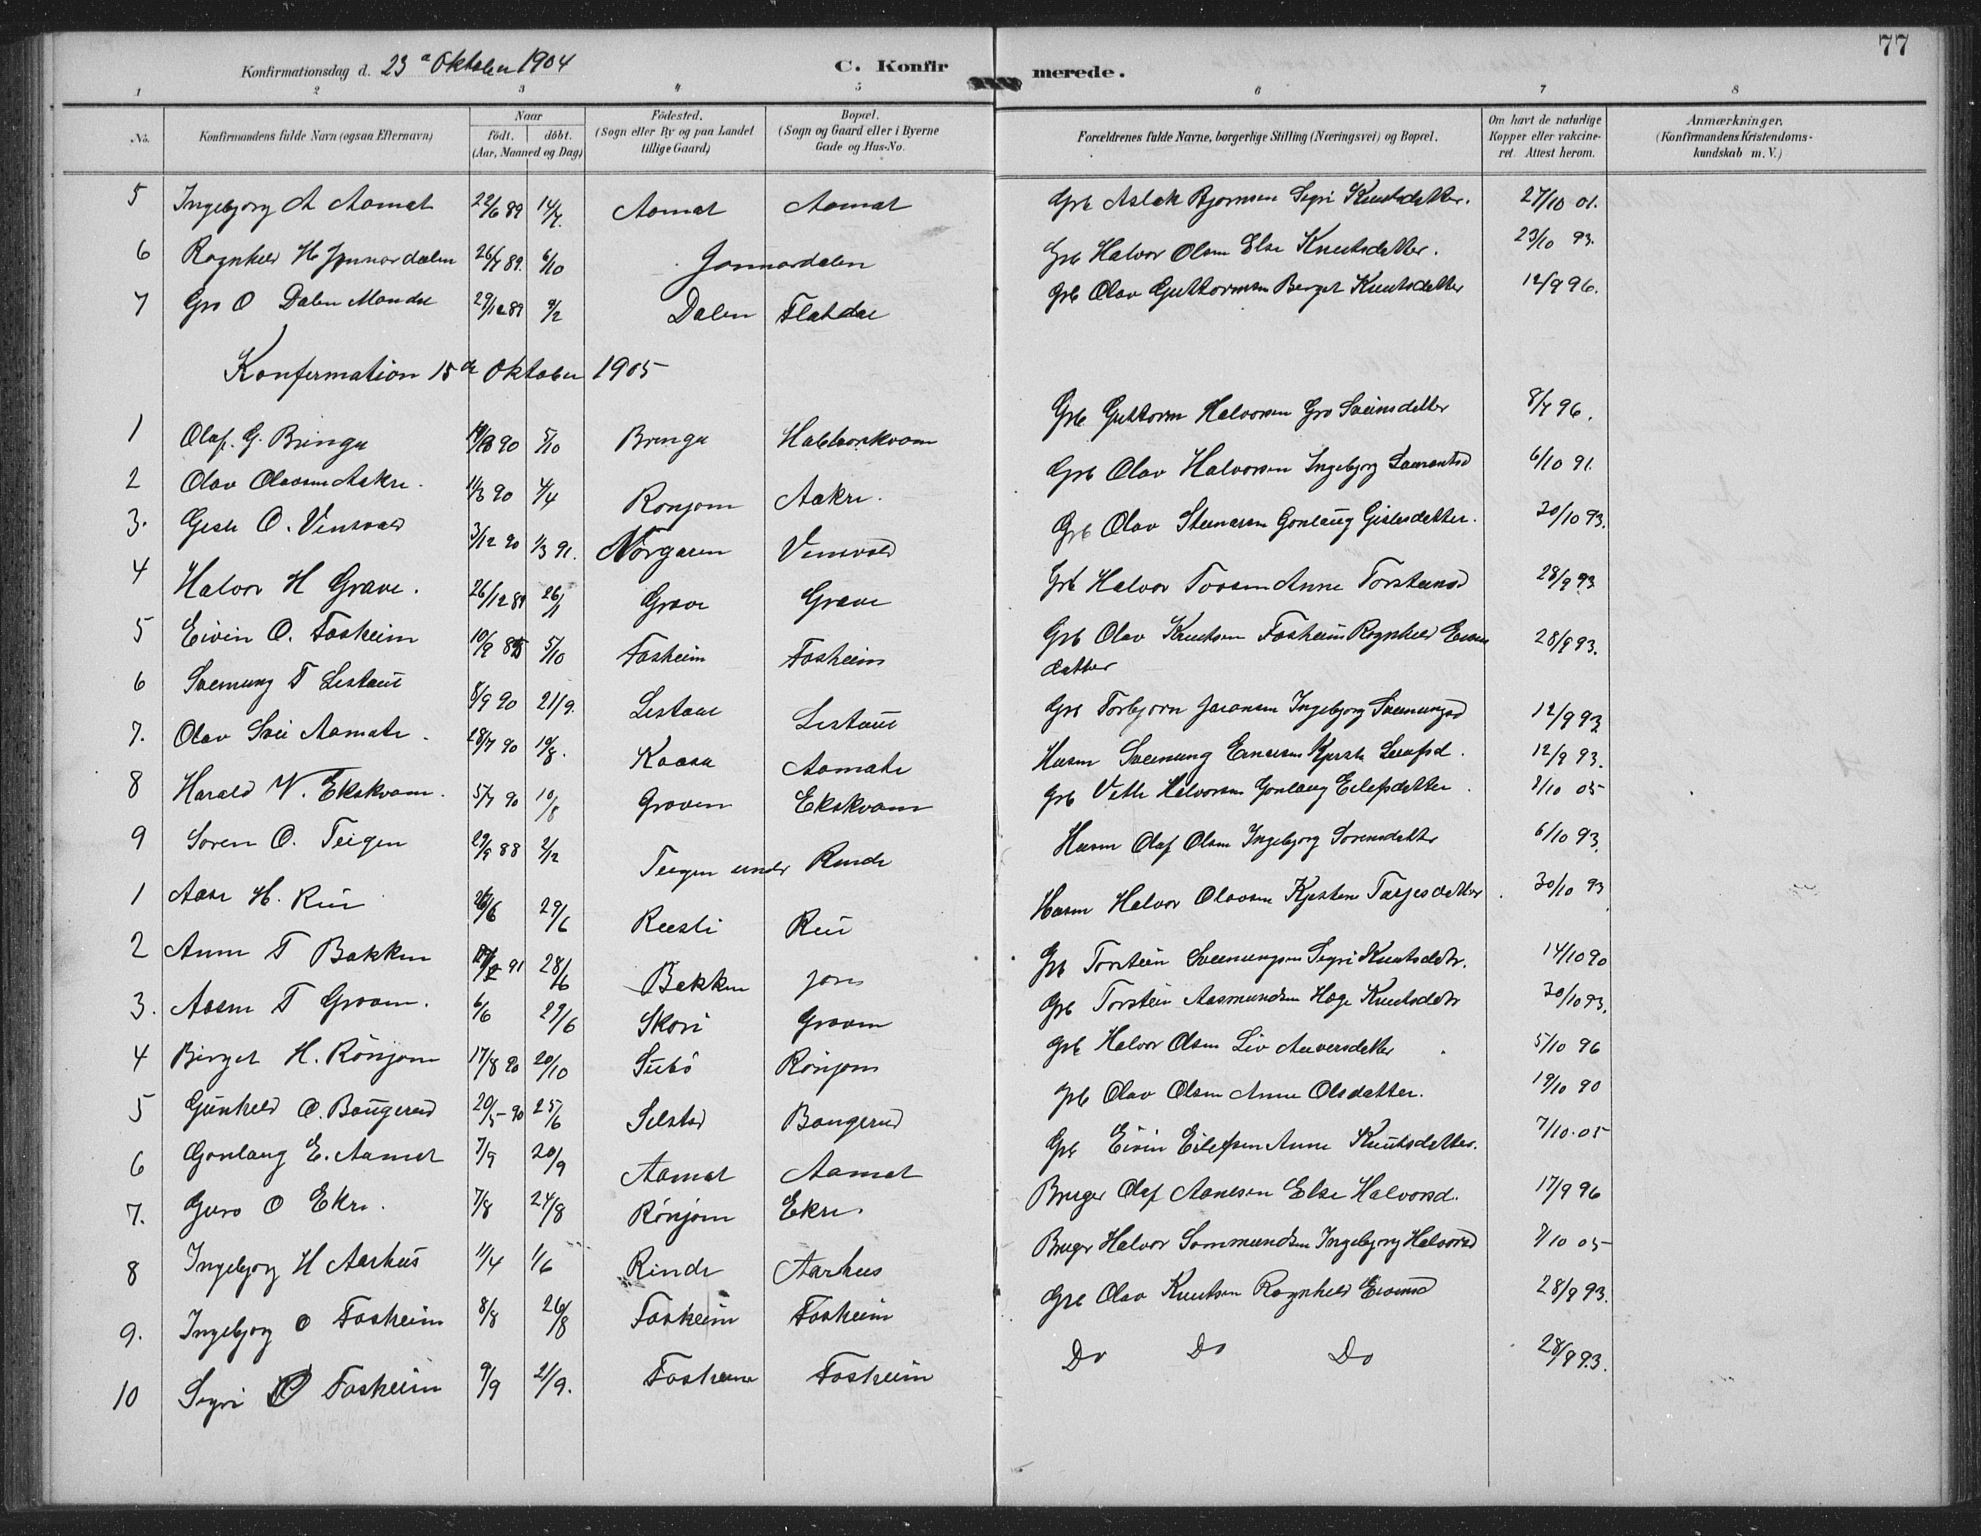 77
Konfirmationsdag d. 23 Oktober 1904 C. Konfirmerede.
1 2 3 4 5 6 7 8
No. Konfirmandens fulde Navn (ogsaa Efternavn) Naar födt. döbt. (Aar, Maaned og Dag) Födested. (Sogn eller By og paa Landet tillige Gaard) Bopæl. (Sogn og Gaard eller i Byerne Gade og Hus-No. Forældrenes fulde Navne, borgerlige Stilling (Næringsvei) og Bopæl. Om havt de naturlige Kopper eller vakcineret. Attest herom. Anmærkninger. (Konfirmandens Kristendomskundskab m. V.)
5 Ingebjorg A Aamot 22/6 89 14/7 Aamot Aamot Grb Aslak Bjornsen Sigri Knutsdatter. 27/10 01.
6 Ragnhild H Jonnordalen 26/7 89. 6/10 Jonnordalen Grb Halvor Olsen Else Knutsdatter. 23/10 93.
7 Gro O Dalen Mandt 29/12 89 9/2 Dalen Flatdal Grb Olav Guttormsen Berget Knutsdatter 12/9 96.
Konfermation 15de Oktober 1905
1 Olaf. G. Bringa 90 5/10 Bringa Grb Guttorm Halvorsen Gro Sveinsdatter 8/7 96.
2 Olav Olavsen Aakre. 11/3 90 4/4 Ronjom Aakre. Grb Olav Halvorsen Ingebjorg 6/10 91.
3. O. Vinsvald 3/12 90 1/3 91. Norgaren Vinsvald Grb Olav Steinarsen Gonlaug Gislesdatter. 30/10 93.
4 Halvor H Grave. 26/12 89 26/1 Grave Grave Grb Halvor Tovsen Anne Torsteinsd 28/9 93
5 Eivin O. Fosheim 10/9 5/10 Fosheim Fosheim Grb Olav Knutsen Fosheim Ragnhild Eivins
datter 28/9 93.
6 Svenung T Listaul 8/9 90 21/9. Listaul Listaul Grb Torbjorn Ingebjorg Svenungsd 12/9 93
7. Olav Svei Aamate. 28/7 90 19/8. Kaasa Aamate Husm Svenung Kjersti 12/9 93.
8 Harald V. Ekskvam. 5/7 90 10/8 Groven Ekskvam Grb Vetle Halvorsen Gonlaug Eilefsdatter 7/10 05
9 Soren O. Teigen 29/9 88 2/12 Teigen under Rinde Husm Olaf Olsen Ingebjorg Sorensdatter 6/10 93.
1 Aase H. Rui 29/6 Ruisti Rui Husm Halvor Olavsen Kjersten Tarjesdatter. 30/10 93
2 Anne T Bakken 91 28/6 Bakken Grb Torstein Svenungsen Sigri Knutsdatr. 14/10 90
3. Aasne T Groven. 6/6 29/6 Skori Groven Grb Torstein Aasmundsen Hæge Knutsdatr 30/10 93.
4 Birget H. Rönjom 17/8 90 20/10 Subö Rönjom Grb Halvor Olsen Liv Auversdatter. 5/10 96
5 Gunhild O. Baugerud 20/5 90 25/6 Selstad Baugerud Grb Olav Olsen Anne Olsdatter. 19/10 90
6 Gonlaug E. Aamot 7/9 20/9 Aamot Aamot Grb Eivin Eilefsen Anne Knutsdatter. 7/10.05
7. Guro O Ekre. 7/8 24/8 Rönjom Ekre. Bruger Olaf Aanesen Else Halvorsd. 17/9 96
8 Ingebjorg H Aarhus 11/4 1/6 Rinde Aarhus Bruger Halvor Sammundsen Ingebjorg Halvorsd 7/10 05
9. Ingebjorg O Fosheim 8/8 26/8 Fosheim Fosheim Grb Olav Knutsen Ragnhild Eivinsd 28/9 93.
10 Sigri O Fosheim 9/9 21/9. Fosheim Fosheim Do Do Do 28/9 93.